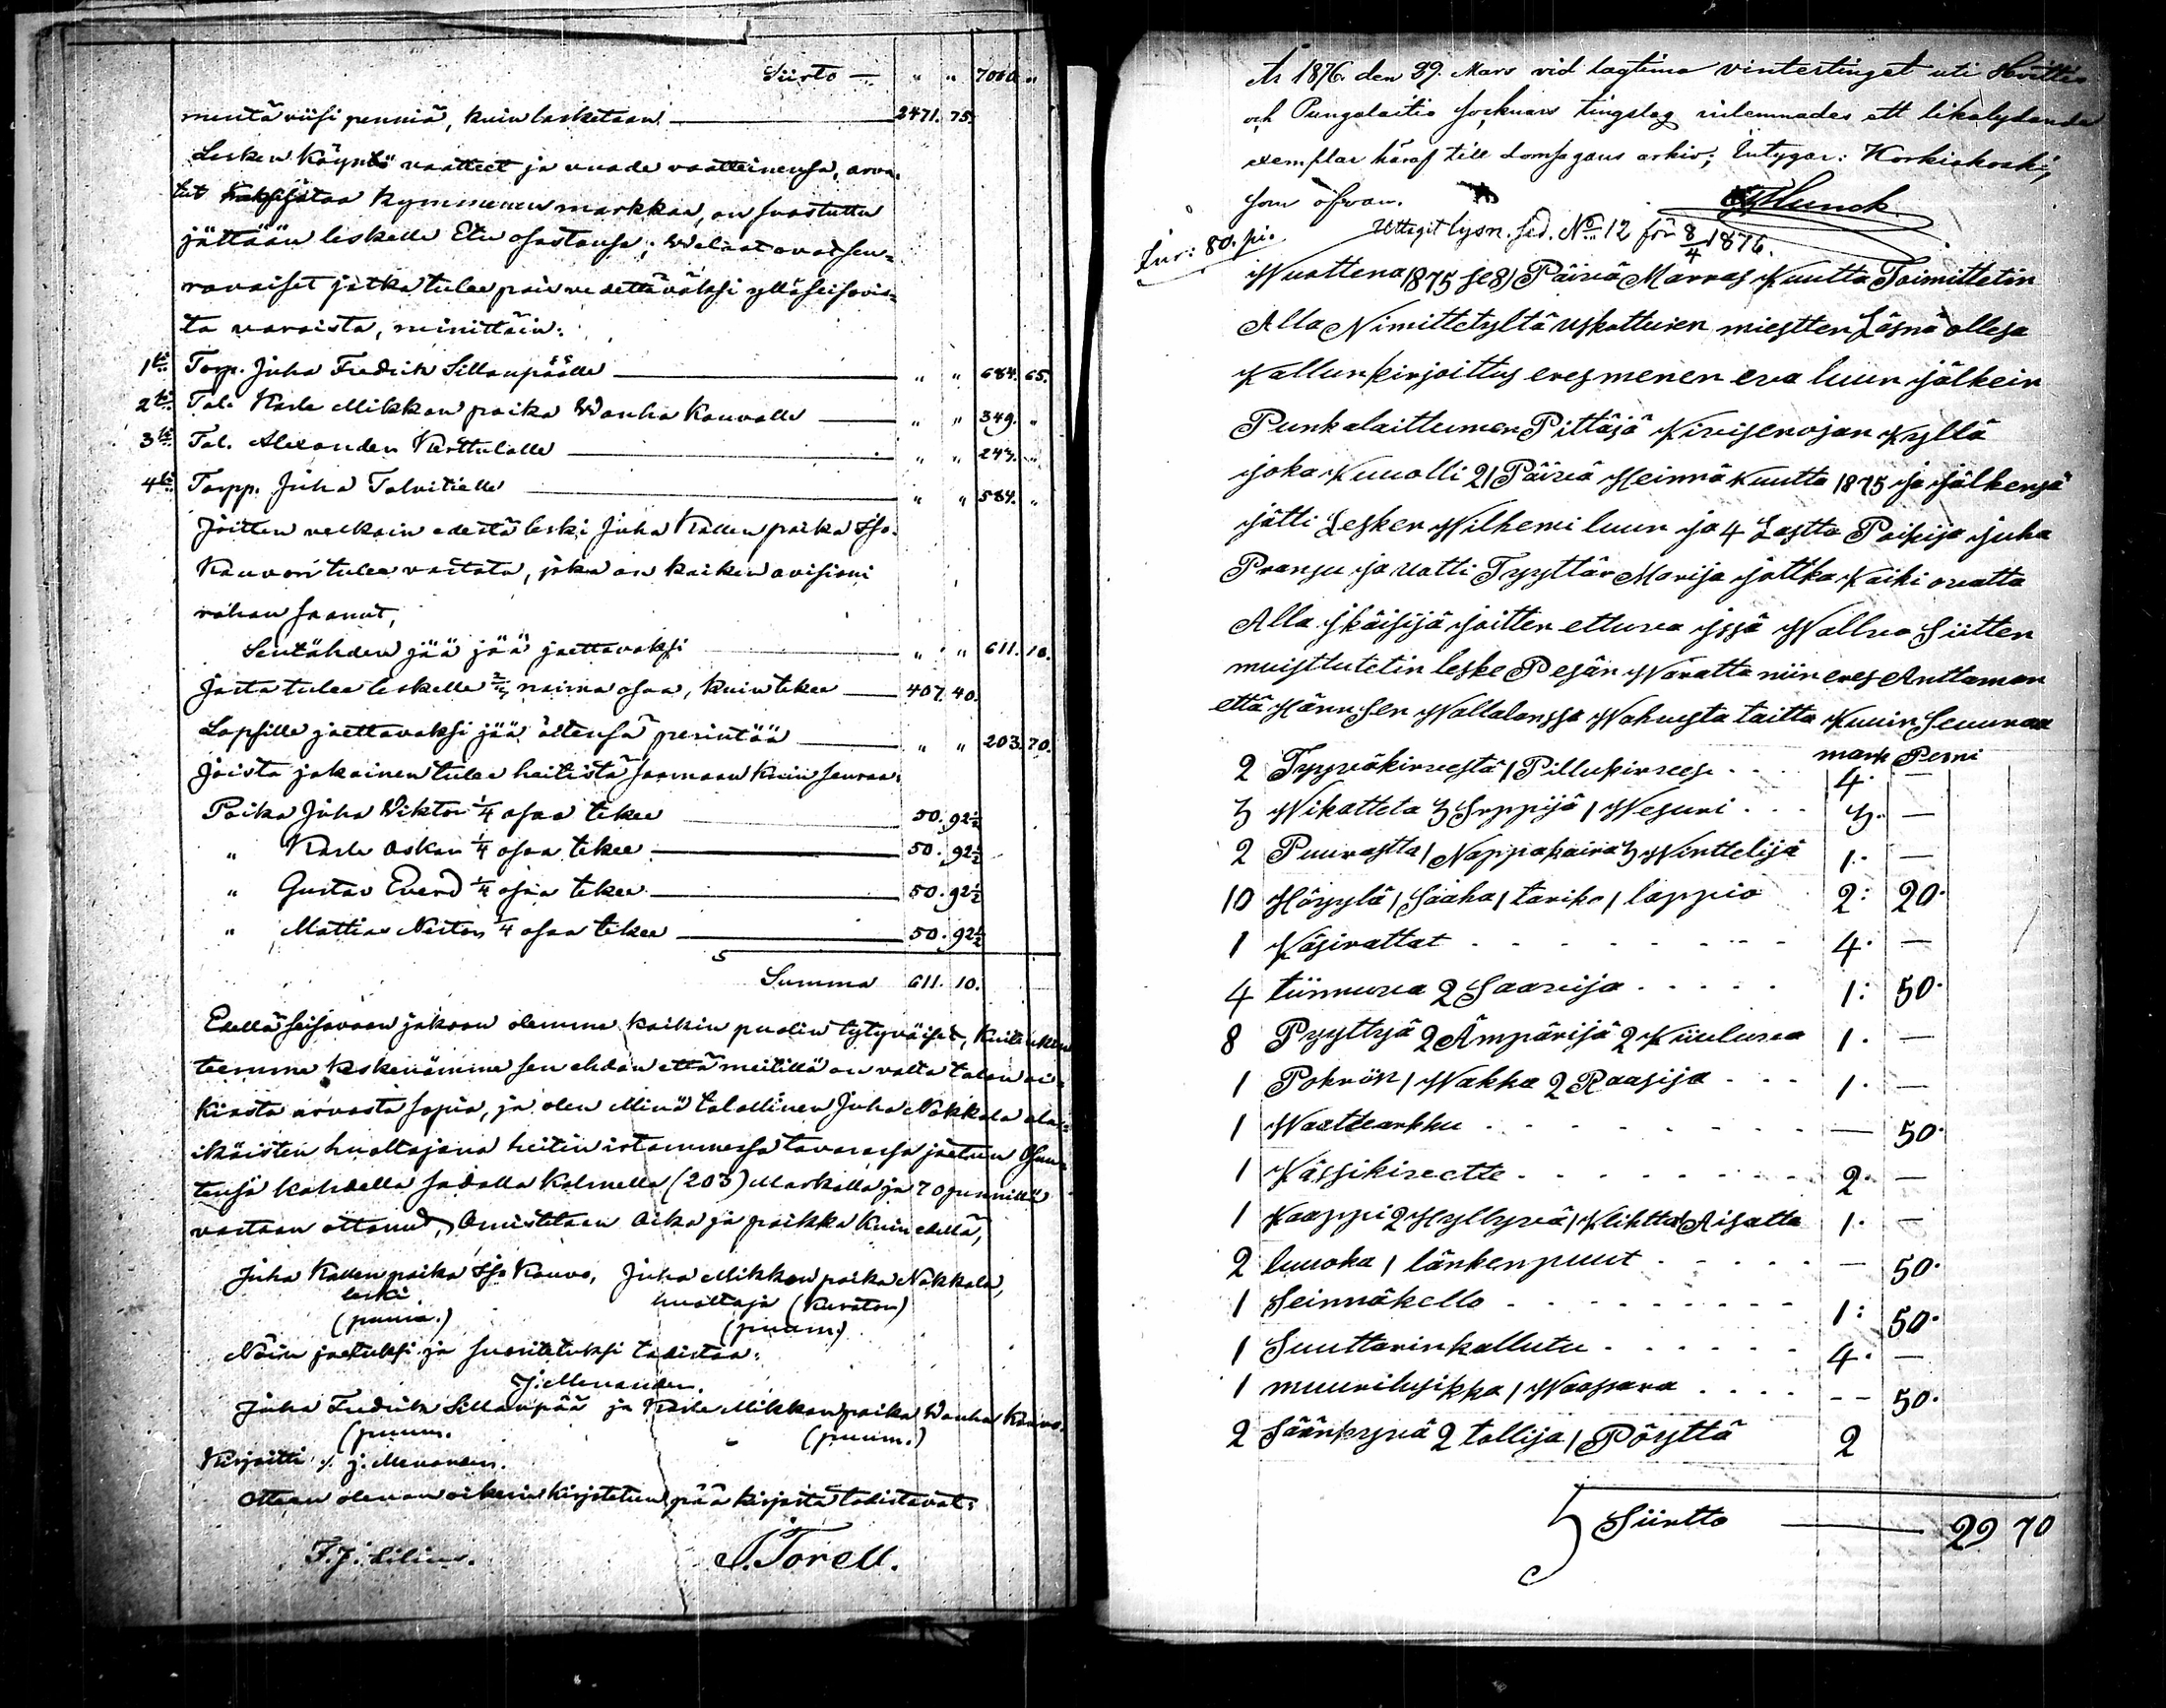 Siirto — " " 7000. "
mentä viisi penniä, kuin lasketaan — 2471. 75.
Lesken Käyntö vaatteet ja vuode vaatteinensa, arva-
tut Kymmenen markkaa, on suostuttu
jättään leskelle Etu osastansa; Welaat ovat seu-
ravaiset jotka tulee pois vedettäväksi ylläseisovis-
ta varoista, nimittäin:
1ksi Torp. Juha Fredrik Sillanpäälle — " " 684. 65.
2ksi Tal. Karle Mikkon poika Wanha Kauvalle — " " 349. "
3ksi Tal. Alexander Kerttulalle — " " 243. "
4ksi Torpp. Juha Talvitielle — " " 584. "
Joitten velkain edestä leski Juha Kallen poika Iso-
Kauvon tulee vastata, joka on kaiken avisioni
rahan saanut,
Sentähden jää jää jaettavaksi — " " 611. 10.
Josta tulee leskelle naima osaa, kuin tekee — 407. 40.
Lapsille jaettavaksi jää äitensä perintöä — " " 203. 70.
Joista jokainen tulee heitistä saamaan kuin seuraa:
Poika Juha Wiktor 1/4 osaa tekee — 50. 92 1/2
" Karle Oskar 1/4 osaa tekee — 50. 92 1/2
" Gustav Everd 1/4 osaa tekee — 50. 92 1/2
" Mattias Nestor 1/4 osaa tekee — 50. 92 1/2
Summa 611. 10.
Edellä seisovaan jakoon olemme kaikin puolin tytyväiset, Kuitenkin
teemme keskenämme sen ehdon että meitillä on valta talon oi-
kiasta arvosta sopia, ja olen Minä talollinen Juha Nokkala ala-
ikäisten huoltajana heitin irtammessa tavarassa jaetun Osan-
tensa kahdella sadalla kolmella (203) Markalla ja 70 pennillä
vastaan ottanut, Omistetaan Aika ja paikka kuin edellä,
Juha Kallen poika Iso Kauvo, Juha Mikkon poika Nokkala,
leski huoltaja (kurator)
(puum.) (puum.)
Näin jaetuksi ja suoritetuksi todistaa:
J. Menander.
Juha Fredrik Sillanpää ja Karle Mikkon poika Wanha Kauvo.
(puum. (puum.)
Kirjoitti J. Menander.
Otteen olevan oikein kirjoitetun pää kirjasta todistavat:
F. J. Silius. J. Torell.
År 1876 den 29. Mars vid lagtima vintertinget uti Hvittis
och Pungalaitio socknars tingslag inlemnades ett likalydande
exemplar häraf till domsagans arkiv; Intygar: Korkiakoski,
som ofvan.
Munck.
Uttagit lysn. sed. No 12 för 8/4 1876.
Lös: 80. pi.
Wuottena 1875 se 8 Päivä Marras Kuutta Toimittetin
Alla Nimittetyltä uskottuien miestten Läsnä ollesa
Kallunkirjoittus eres menen eva luun jälkein
Punkalaittumen Pittäjä Kivisenojan Kyllä
joka Kuuolli 21 Päivä Heinnä Kuutta 1875 ja jälkensä
jätti Lesken Wilhemi luun ja 4 Lastta Poikija juha
Pransu ja vatti Tyyttär Marija jottka Kaiki ovatta
Alla jkäisijä joitten ettuva jssä Wallvo Siitten
muisttutetin leske Pesän Waratta niin eres Anttaman
että Hännsen Wallalanssa Wahuesta taitta Kuuin Seuuraa
mark Penni
2 Tyyväkirvestä 1 Pillukirvese . . 4. —
3 Wikatteta 3 Sirppijä 1 Wesuri . . . 3. —
2 Puurastta 1 Nappakaira 3 Winttelijä 1. —
10 Höyylä 1 Saaha 1 tariko 1 lappio 2: 20.
1 Käsirattat . . . . . 4. —
4 tiinnuva 2 Saavija . . . . . 1: 50.
8 Pyyttyä 2 Ämpärijä 2 Kiuluva 1. —
1 Pokrön 1 Wakka 2 Raasija . . . 1. —
1 Waattearkku . . . . . — 50.
1 Kässikirectte . . . . . 2. —
1 Kaappi 2 Hyllyvä 1 Klihtta Aisatta 1. —
2 luuoka 1 länkenpuut . . . . . — 50.
1 Seinnäkello . . . . . 1: 50.
1 Suuttarinkallutu . . . . . 4. —
1 muurilusikka 1 Waassara . . . . -- 50.
2 Säänkyvä 2 tollija 1 Pöyttä 2
Siirtto — 29 70